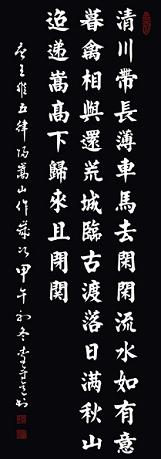 清川帶長薄車馬去閑閑流水如有意
暮禽相與還荒城臨古渡落日满秋山
迢遞嵩高下歸來且閉関
王維五律歸嵩山作歲次甲午初冬李